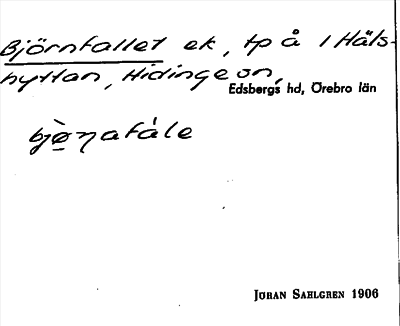 Björnfallet ek, tp å / Häls-
hyttan, Hidinge sn,
Edsbergs hd, Örebro län
bjø̀ɳafále
JÖRAN SAHLGREN 1906